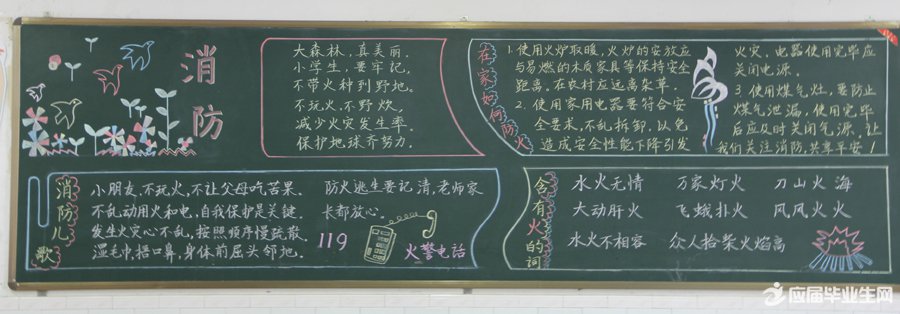 消防
大森林,真美丽.
小学生,要牢记,
不带火种到野地.
不玩火,不野炊,
减少火灾发生率.
保护地球齐努力.
在家如何防火
1.使用火炉取暖,火炉的安放应
与易燃的木质家具等保持安全
距离,在农村应远离杂草.
2.使用家用电器要符合安
全要求,不乱拆卸,以免
造成安全性能下降引发
火灾,电器使用完毕应
关闭电源.
3.使用煤气灶,要防止
煤气泄漏,使用完毕
后应及时关闭气源.让
我们关注消防,共享平安!
消防儿歌
小朋友,不玩火,不让父母吃苦果.
不乱动用火和电,自我保护是关键.
发生火灾心不乱,按照顺序慢疏散.
湿毛巾,捂口鼻,身体前屈头邻地.
防火逃生要记清,老师家
长都放心.
119
火警电话
含有火的词
水火无情 万家灯火 刀山火海
大动肝火 飞蛾扑火 风风火火
水火不相容 众人拾柴火焰高
应届毕业生网